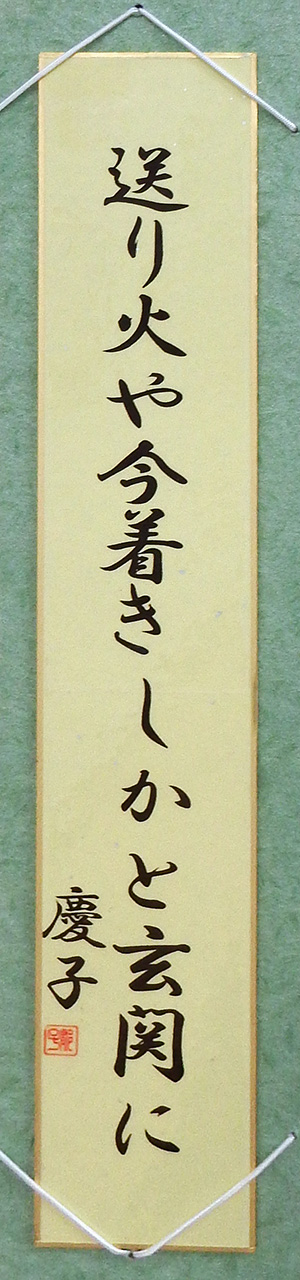 送り火や今着きしかと玄関に
慶子